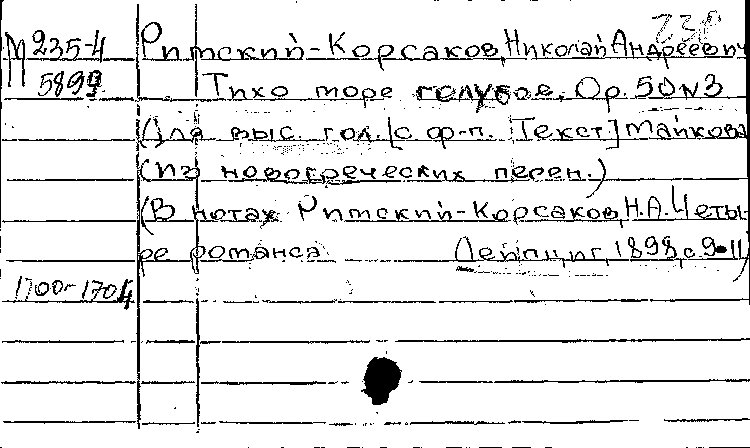 238
М 235-4 Римский-Корсаков, Николай Андреевич
5899 Тихо море голубое. Op. 50 N3
(Для выс. гол. [с ф-п. Текст] Майкова
(Из новогреческих песен.)
(В нотах Римский-Корсаков, Н.А. Четы-
ре романса. Лейпциг, 1898, с. 9-11)
1700-1704